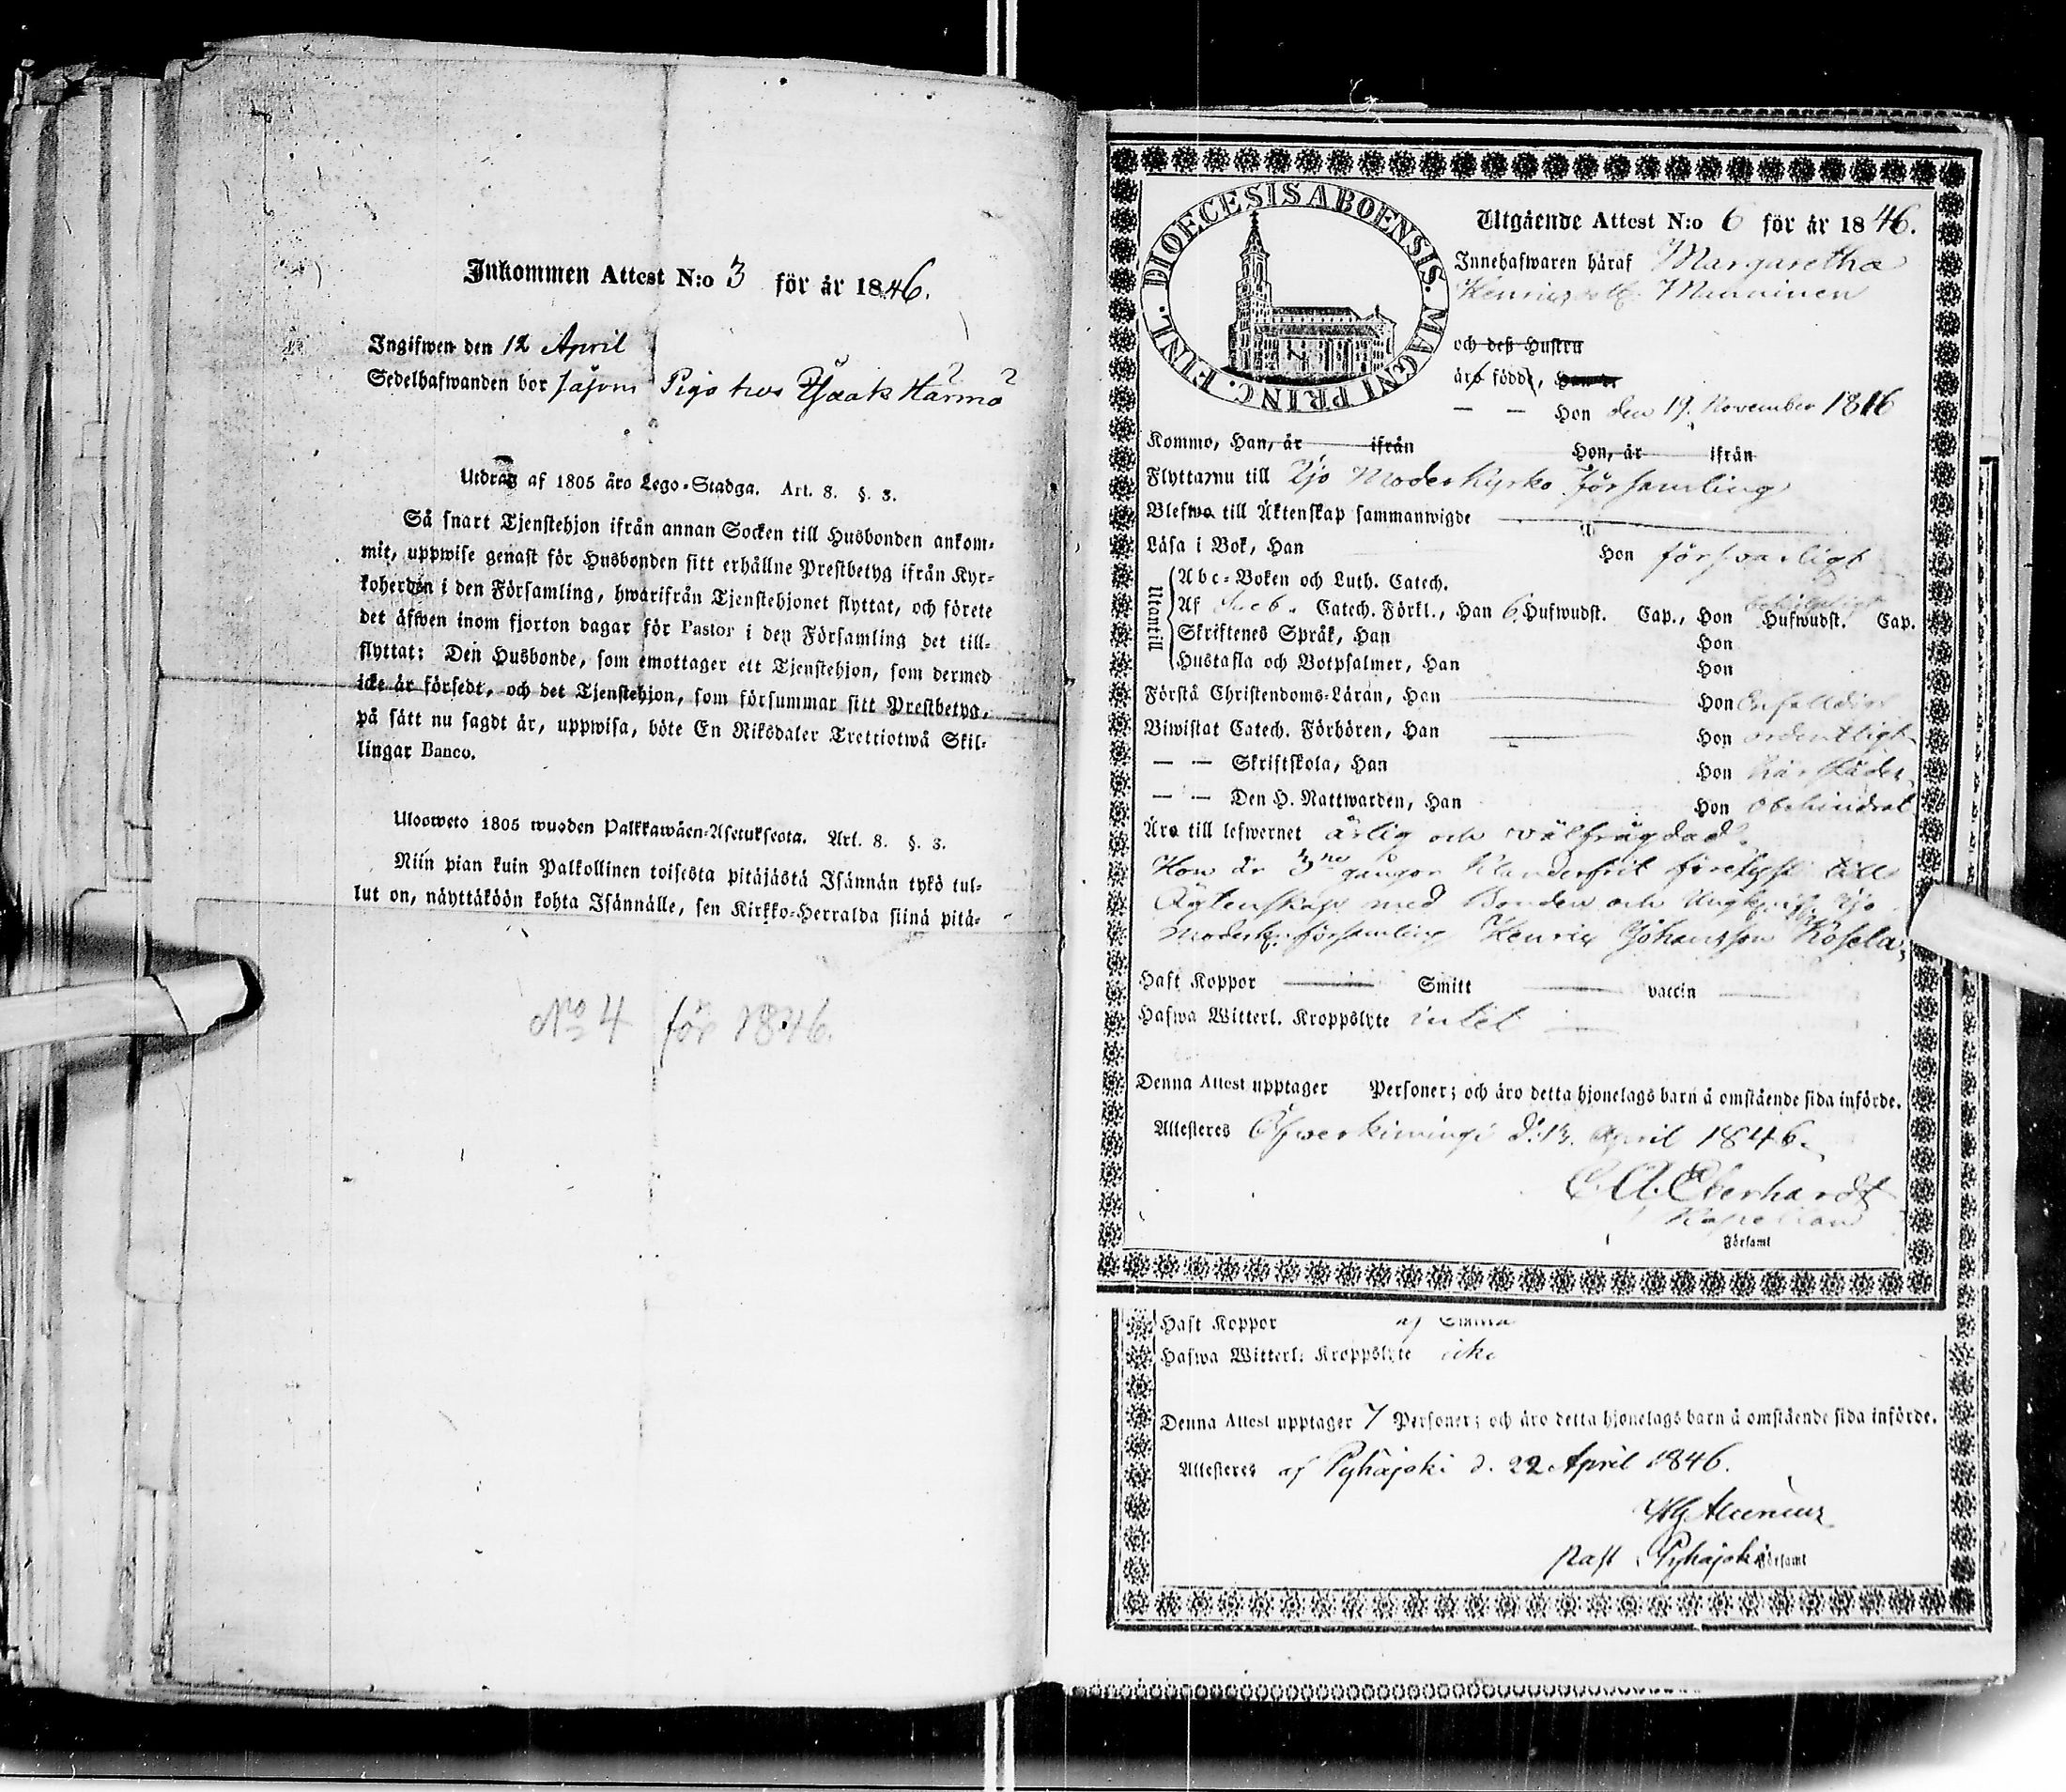 Inkommen Attest N:o 3 för år 1846.
Ingifwen den 12 April
Sedelhafwanden bor Piga hos Härmä
Utdrag af 1805 års Lego-Stadga. Art. 8. §. 3.
Så snart Tjenstehjon ifrån annan Socken till Husbonden ankom-
mit, uppwise genast för Husbonden sitt erhållne Prestbetyg ifrån Kyr-
koherden i den Församling, hwarifrån Tjenstehjonet flyttat, och förete
det äfwen inom fjorton dagar för Pastor i den Församling det till-
flyttat: Den Husbonde, som emottager ett Tjenstehjon, som dermed
icke är försedt, och det Tjenstehjon, som försummar sitt Prestbetyg,
på sätt nu sagdt är, uppwisa, böte En Riksdaler Trettiotwå Skil-
lingar Banco.
Ulosweto 1805 wuoden Palkkawäen-Asetuksesta. Art. 8. §. 3.
Niin pian kuin Palkollinen toisesta pitäjästä Isännän tykö tul-
lut on, näyttäköön kohta Isännälle, sen Kirkko-Herralda siinä pitä-
No 4 för 1846.
DIOECESIS ABOENSIS. MAGNI PRINC. FINL.
Utgående Attest N:o 6 för år 1846.
Innehafwaren häraf Margaretha
Henricsdotter Manninen
och deß Hustru
äro födde,
— — Hon den 19. November 1816
Komma, Han, är ifrån Hon, är ifrån
Flytta nu till Ijo Moderkyrko församling
Blefwo till Äktenskap sammanwigde
Läsa i Bok, Han Hon försvarligt
Utantill
Abc-Boken och Luth. Catech.
Af Sveb. Catech. Förkl., Han 6 Hufwudst. Cap., Hon Hufwudst. Cap.
Skriftenes Språk, Han Hon
Hustafla och Botpsalmer, Han Hon
Förstå Christendoms-Läran, Han Hon
Biwistat Catech. Förhören, Han Hon ordentligt
— — Skriftskola, Han Hon härstädes
— — Den H. Nattwarden, Han Hon obehindrat
Äro till lefwernet ärlig och välfrägdad.
Hon är 3ne gångor klanderfrit till
Ägtenskap med Bonden och Ijo
Moderk. församling Henric Johansson
Haft Koppor Smitt vaccin
Hafwa Witterl. Kroppslyte intet
Denna Attest upptager Personer; och äro detta hjonelags barn å omstående sida införde.
Attesteras Öfwerkimingi d. 13. April 1846.
C. A. Eberhardt
Kapellan
Församl
Haft Koppor af
Hafwa Witterl. Kroppslyte icke
Denna Attest upptager 7 Personer; och äro detta hjonelags barn å omstående sida införde.
Attesteras af Pyhäjoki d. 22 April 1846.
Past i Pyhäjoki Församl